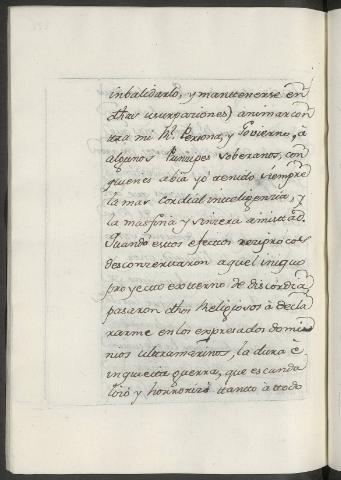 inbalidarlo, y mantenerse en
dhas usurpaziones) animar con
tra mi Rl. Persona, y Govierno, à
algunos Prinzipes soberanos, con
quienes abia yò tenido siempre
la mas cordial inteligenzia, y
la mas fina y sinzera amistad.
Quando estos efectos reziprocos
desconzertaron aquel iniquo
proyecto externo de discordia
pasaron dhos Religiosos à decla
rarme en los expresados domi
nios ultramarinos, la dura è
inquieta guerra, que escanda
lizò y horrorizò tanto à todo